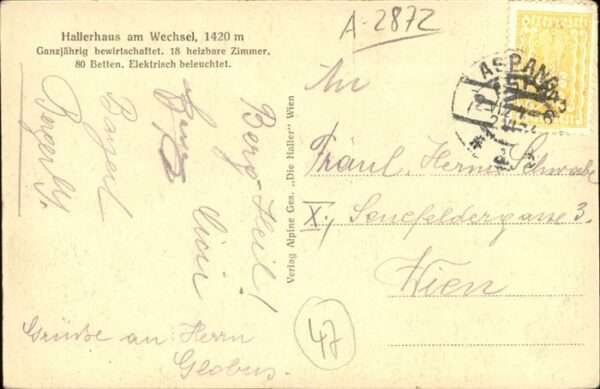 Hallerhaus am Wechsel, 1420 m
Ganzjährig bewirtschaftet. 18 heizbare Zimmer.
80 Betten. Elektrisch beleuchtet.
A-2872
ASPANG
Berg-Heil!
Grüße an Herrn
Globus.
Verlag Alpine Ges. „Die Haller" Wien
An
Fräul. Herma Schwabe
X., Senefeldergasse 3.
Wien
47